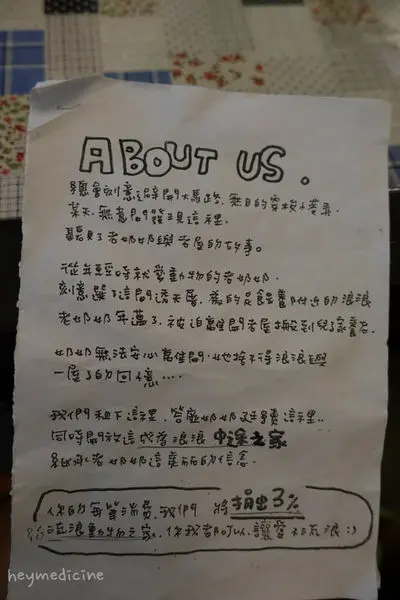 ABOUT US.
總會刻意避開大馬路，無目的穿梭小巷弄.
某天，無意間發現這裡.
聽見了老奶奶與老屋的故事。
從年輕時就愛動物的老奶奶.
刻意選了這間透天厝，為的是餵養附近的浪浪
老奶奶年邁了，被迫離開老屋搬到兒子家養老.
奶奶無法安心離開，她捨不得浪浪與
一屋子的回憶....
我們租下這裡，答應奶奶延續這裡..
同時開放這成為浪浪 中途之家
繼承老奶奶這美麗的信念.
你的每筆消費，我們 將捐出3%
給流浪動物之家，你我都可以，讓愛不流浪:)
heymedicine